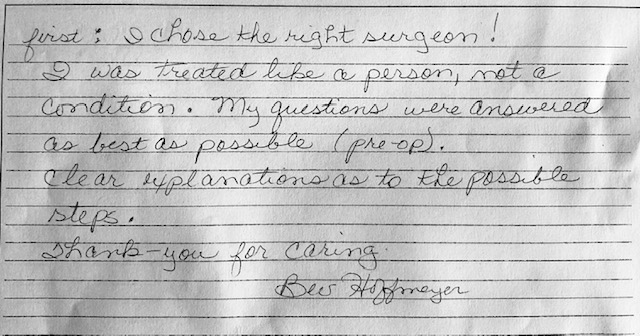 first: I chose the right surgeon!
I was treated like a person, not a
condition. My questions were answered
as best as possible (pre-op).
Clear explanations as to the possible
steps.
Thank-you for caring.
Bev Hoffmeyer